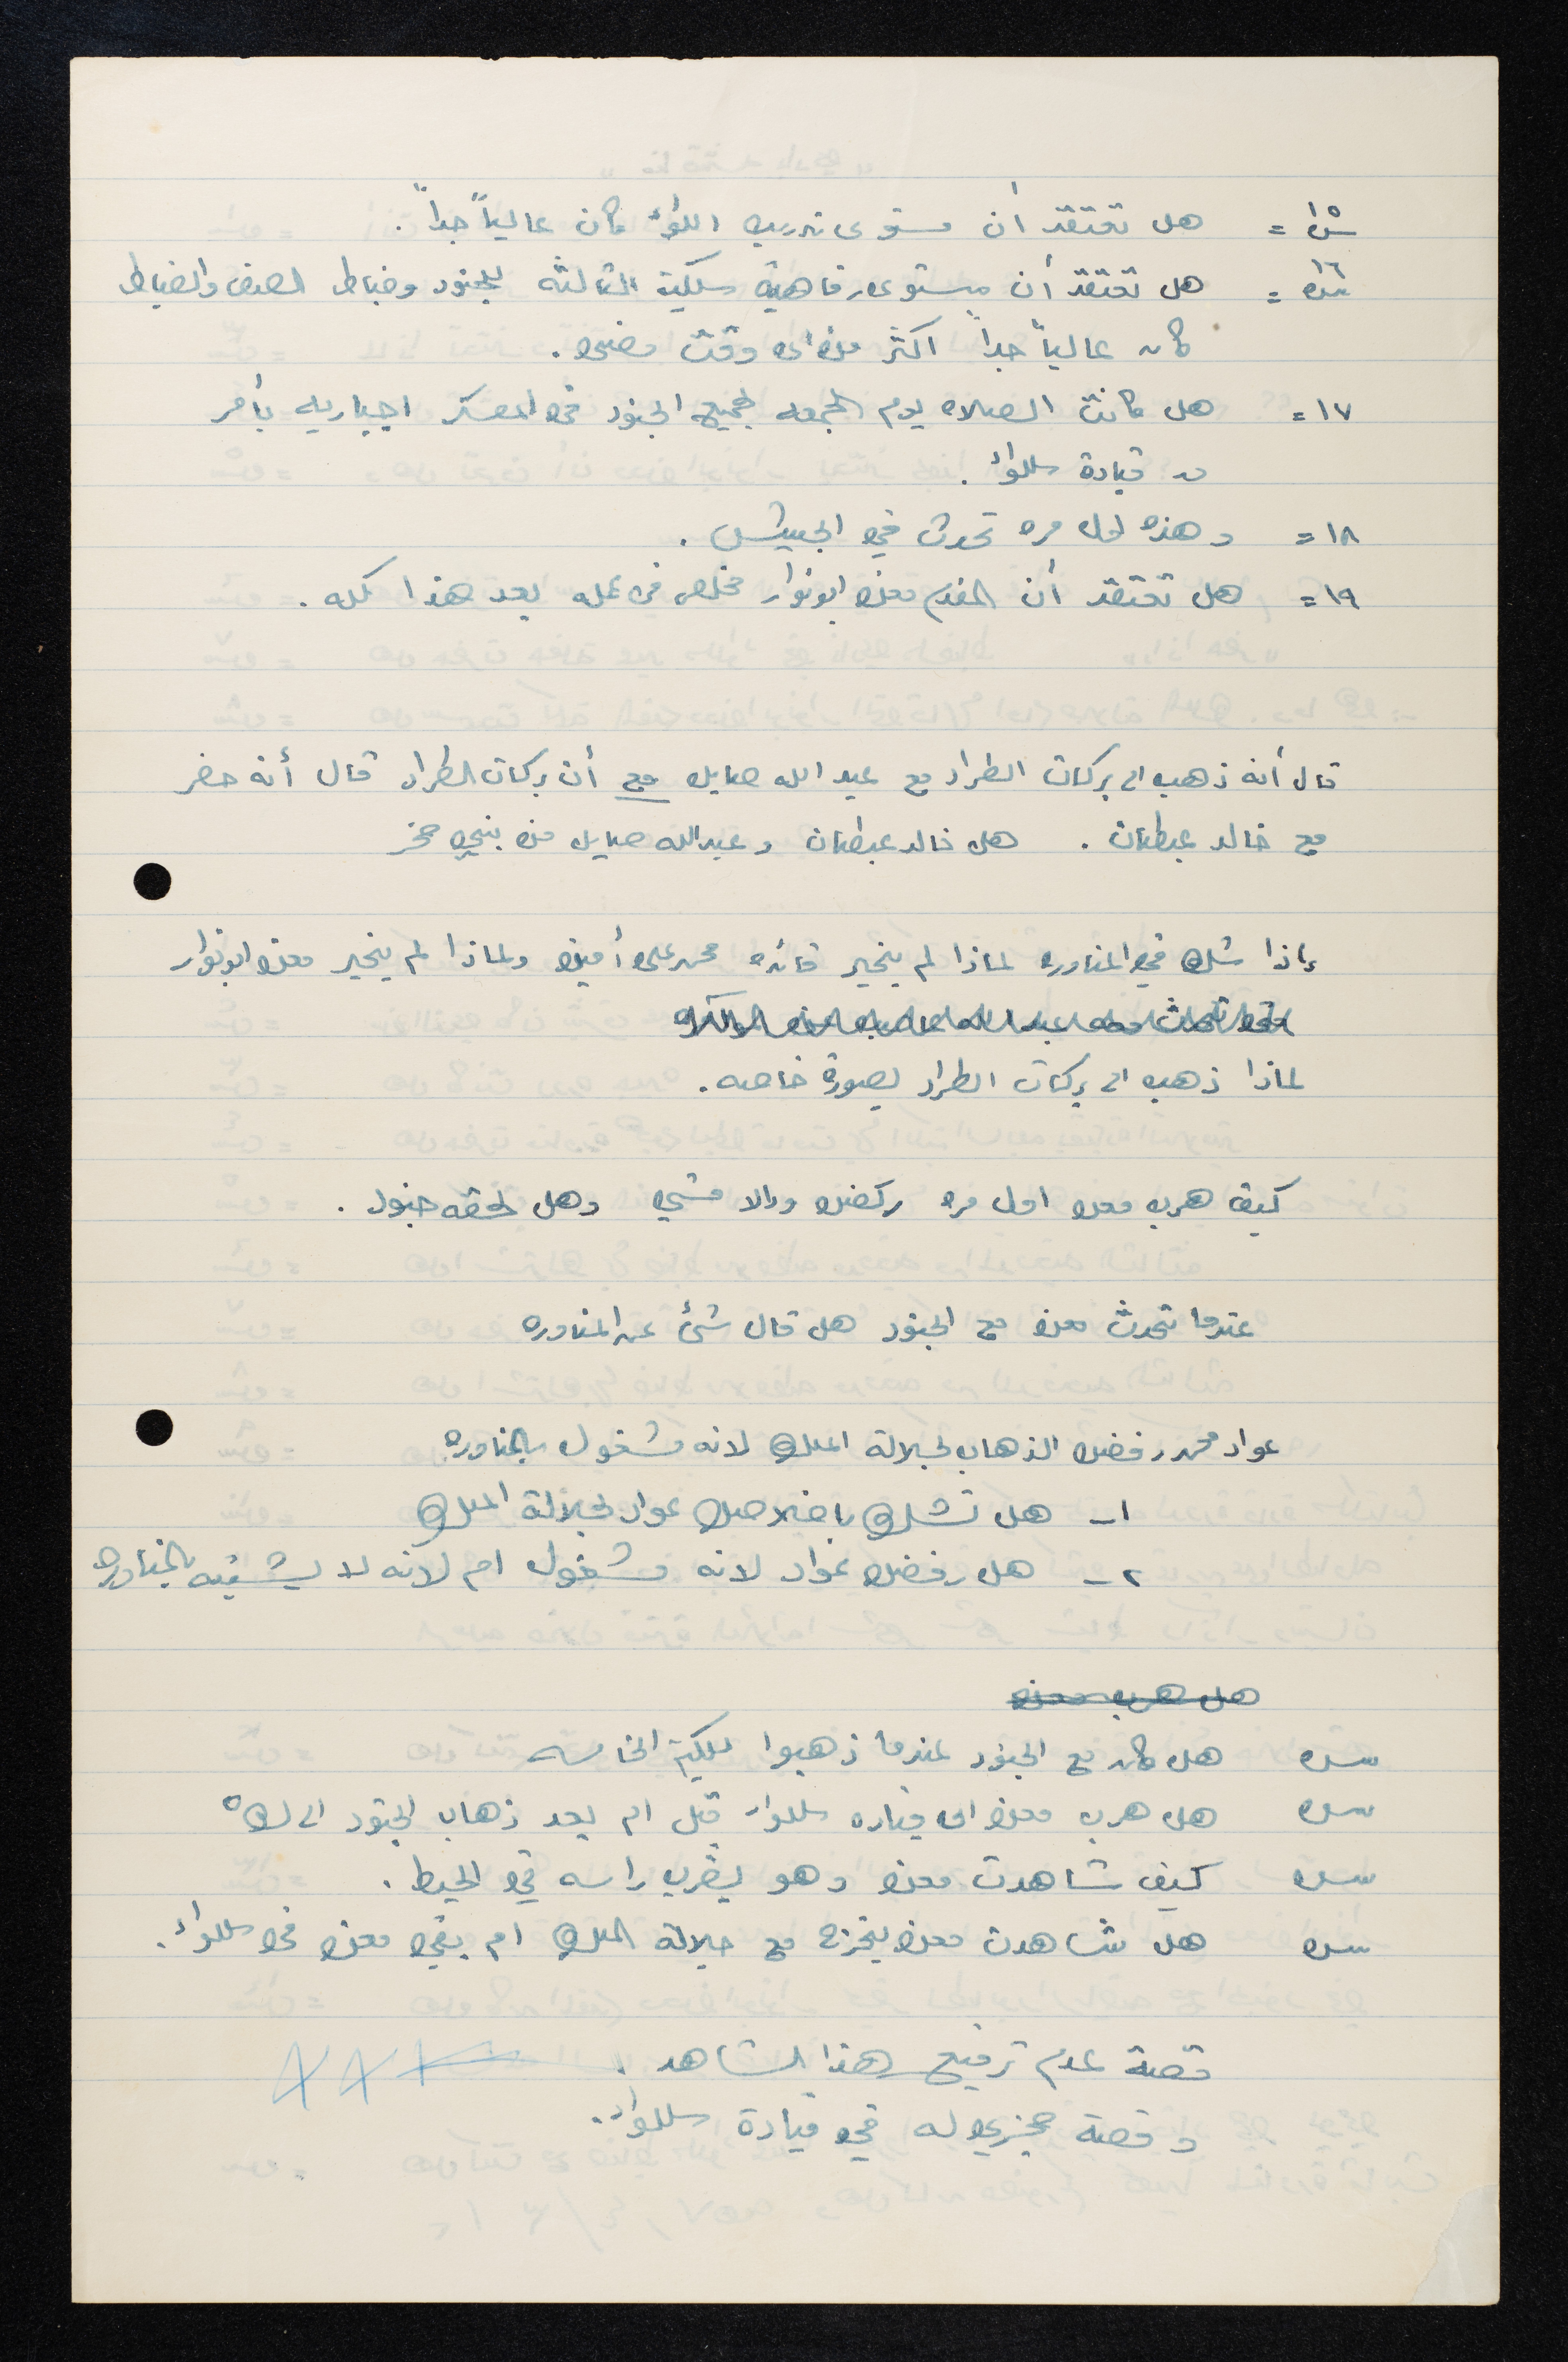 س١٥ = هل تعتقد أن مستوى تدريب اللواء كان عالياً جداً .
س١٦ = هل تعتقد أن مستوى رفاهية سكتية الثالثه للجنود وضباط الصف والضباط
كان عالياً جداً اكثر من اى وقت مضى .
١٧ = هل كانت الصلاه يوم الجمعه لجميع الجنود في المعسكر اجباريه بأمر
من قيادة اللواء .
١٨ = وهذه اول مره تحدث في الجيش .
١٩ = هل تعتقد أن المقدم معن ابونوار مخلص في عمله بعد هذا كله .
قال أنه ذهب الى بركات الطراد مع عبد الله صايل مع أن بركات الطراد قال أنه حضر
مع خالد عبطان . هل خالد عبطان وعبدالله صايل من بني صخر
إذا شك في المناوره لماذا لم يخبر قائده محمد على أمين ولماذا لم يخبر معن ابونوار
لماذا ذهب الى بركات الطراد بصورة خاصه .
كيف هرب معن اول مره ركض والا مشي وهل لحقه جنود .
عندما تحدث معن مع الجنود هل قال شئ عن المناوره
عواد محمد رفض الذهاب لجلالة الملك لانه مشغول بالمناوره
١ـ هل تشك باخلاص عواد لجلالة الملك
٢ـ هل رفض عواد لانه مشغول ام لانه لا يشتبه بالمناوره
هل هرب معن
س هل كان مع الجنود عندما ذهبوا للكتيبة الخامسه
س هل هرب معن الى قياده اللواء قبل ام بعد ذهاب الجنود الى ك٥
س كيف شاهدت معن وهو يضرب راسه في الحيط .
س هل شاهدت معن يخرج مع جلالة الملك ام بقي معن في اللواء .
قصة عدم ترفيع هذا الشاهد .
وقصة حجزي له في قيادة اللواء .